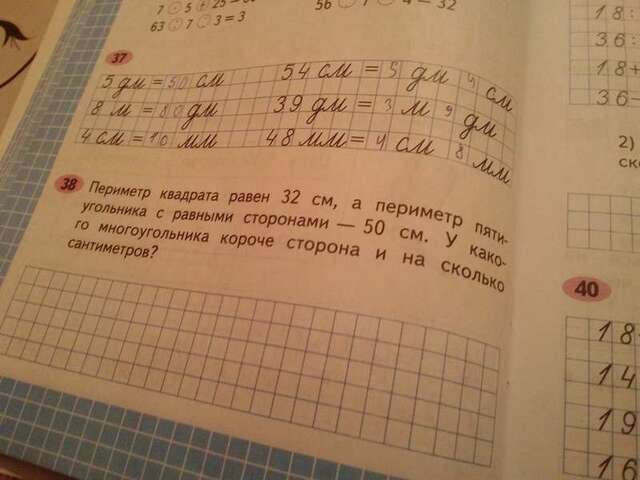 7 · 5 + 25 =
56 : 7 · 4 = 32
63 : 7 : 3 = 3
37
5 дм = 50 см 54 см = 5 дм 4 см
8 м = 80 дм 39 дм = 3 м 9 дм
4 см = 10 мм 48 мм = 4 см 8 мм
38 Периметр квадрата равен 32 см, а периметр пяти-
угольника с равными сторонами — 50 см. У како-
го многоугольника короче сторона и на сколько
сантиметров?
18:
36:
18+
36-
2)
ск
40
18
14
19
16